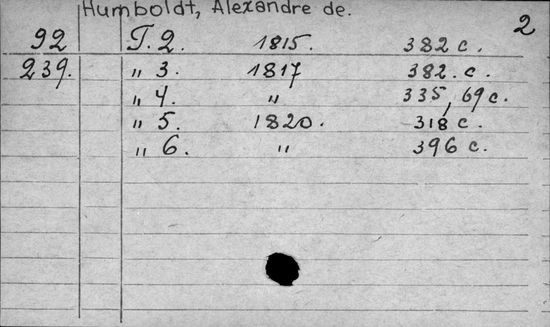 Humboldt, Alexandre de.
2
92 T. 2. 1815. 382 c.
239. " 3. 1817 382. c.
" 4. " 335, 69 c.
" 5. 1820. 318 c.
" 6. " 396 c.